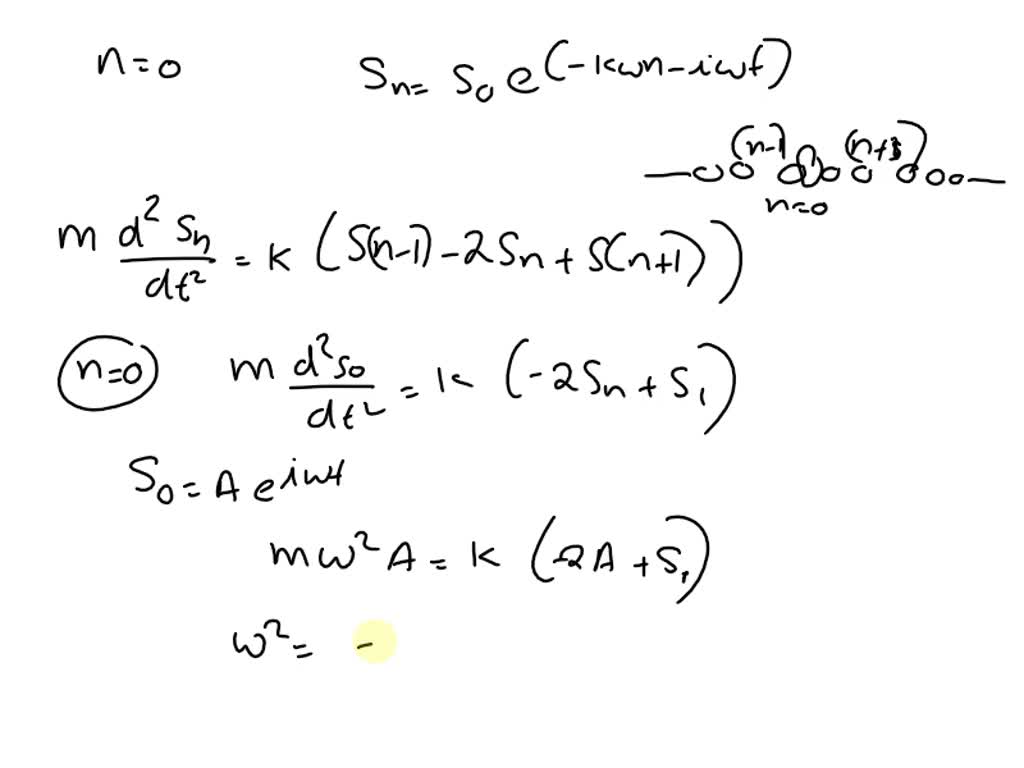 n=0 Sn= S0 e(-kwn-iwt)
(n-1) (n+1)
n=0
m d²Sn/dt² = k (S(n-1)-2Sn+S(n+1))
n=0 m d²S0/dt² = k (-2Sn+S1)
S0=A eiwt
mw²A=k (-2A+S1)
w²= -